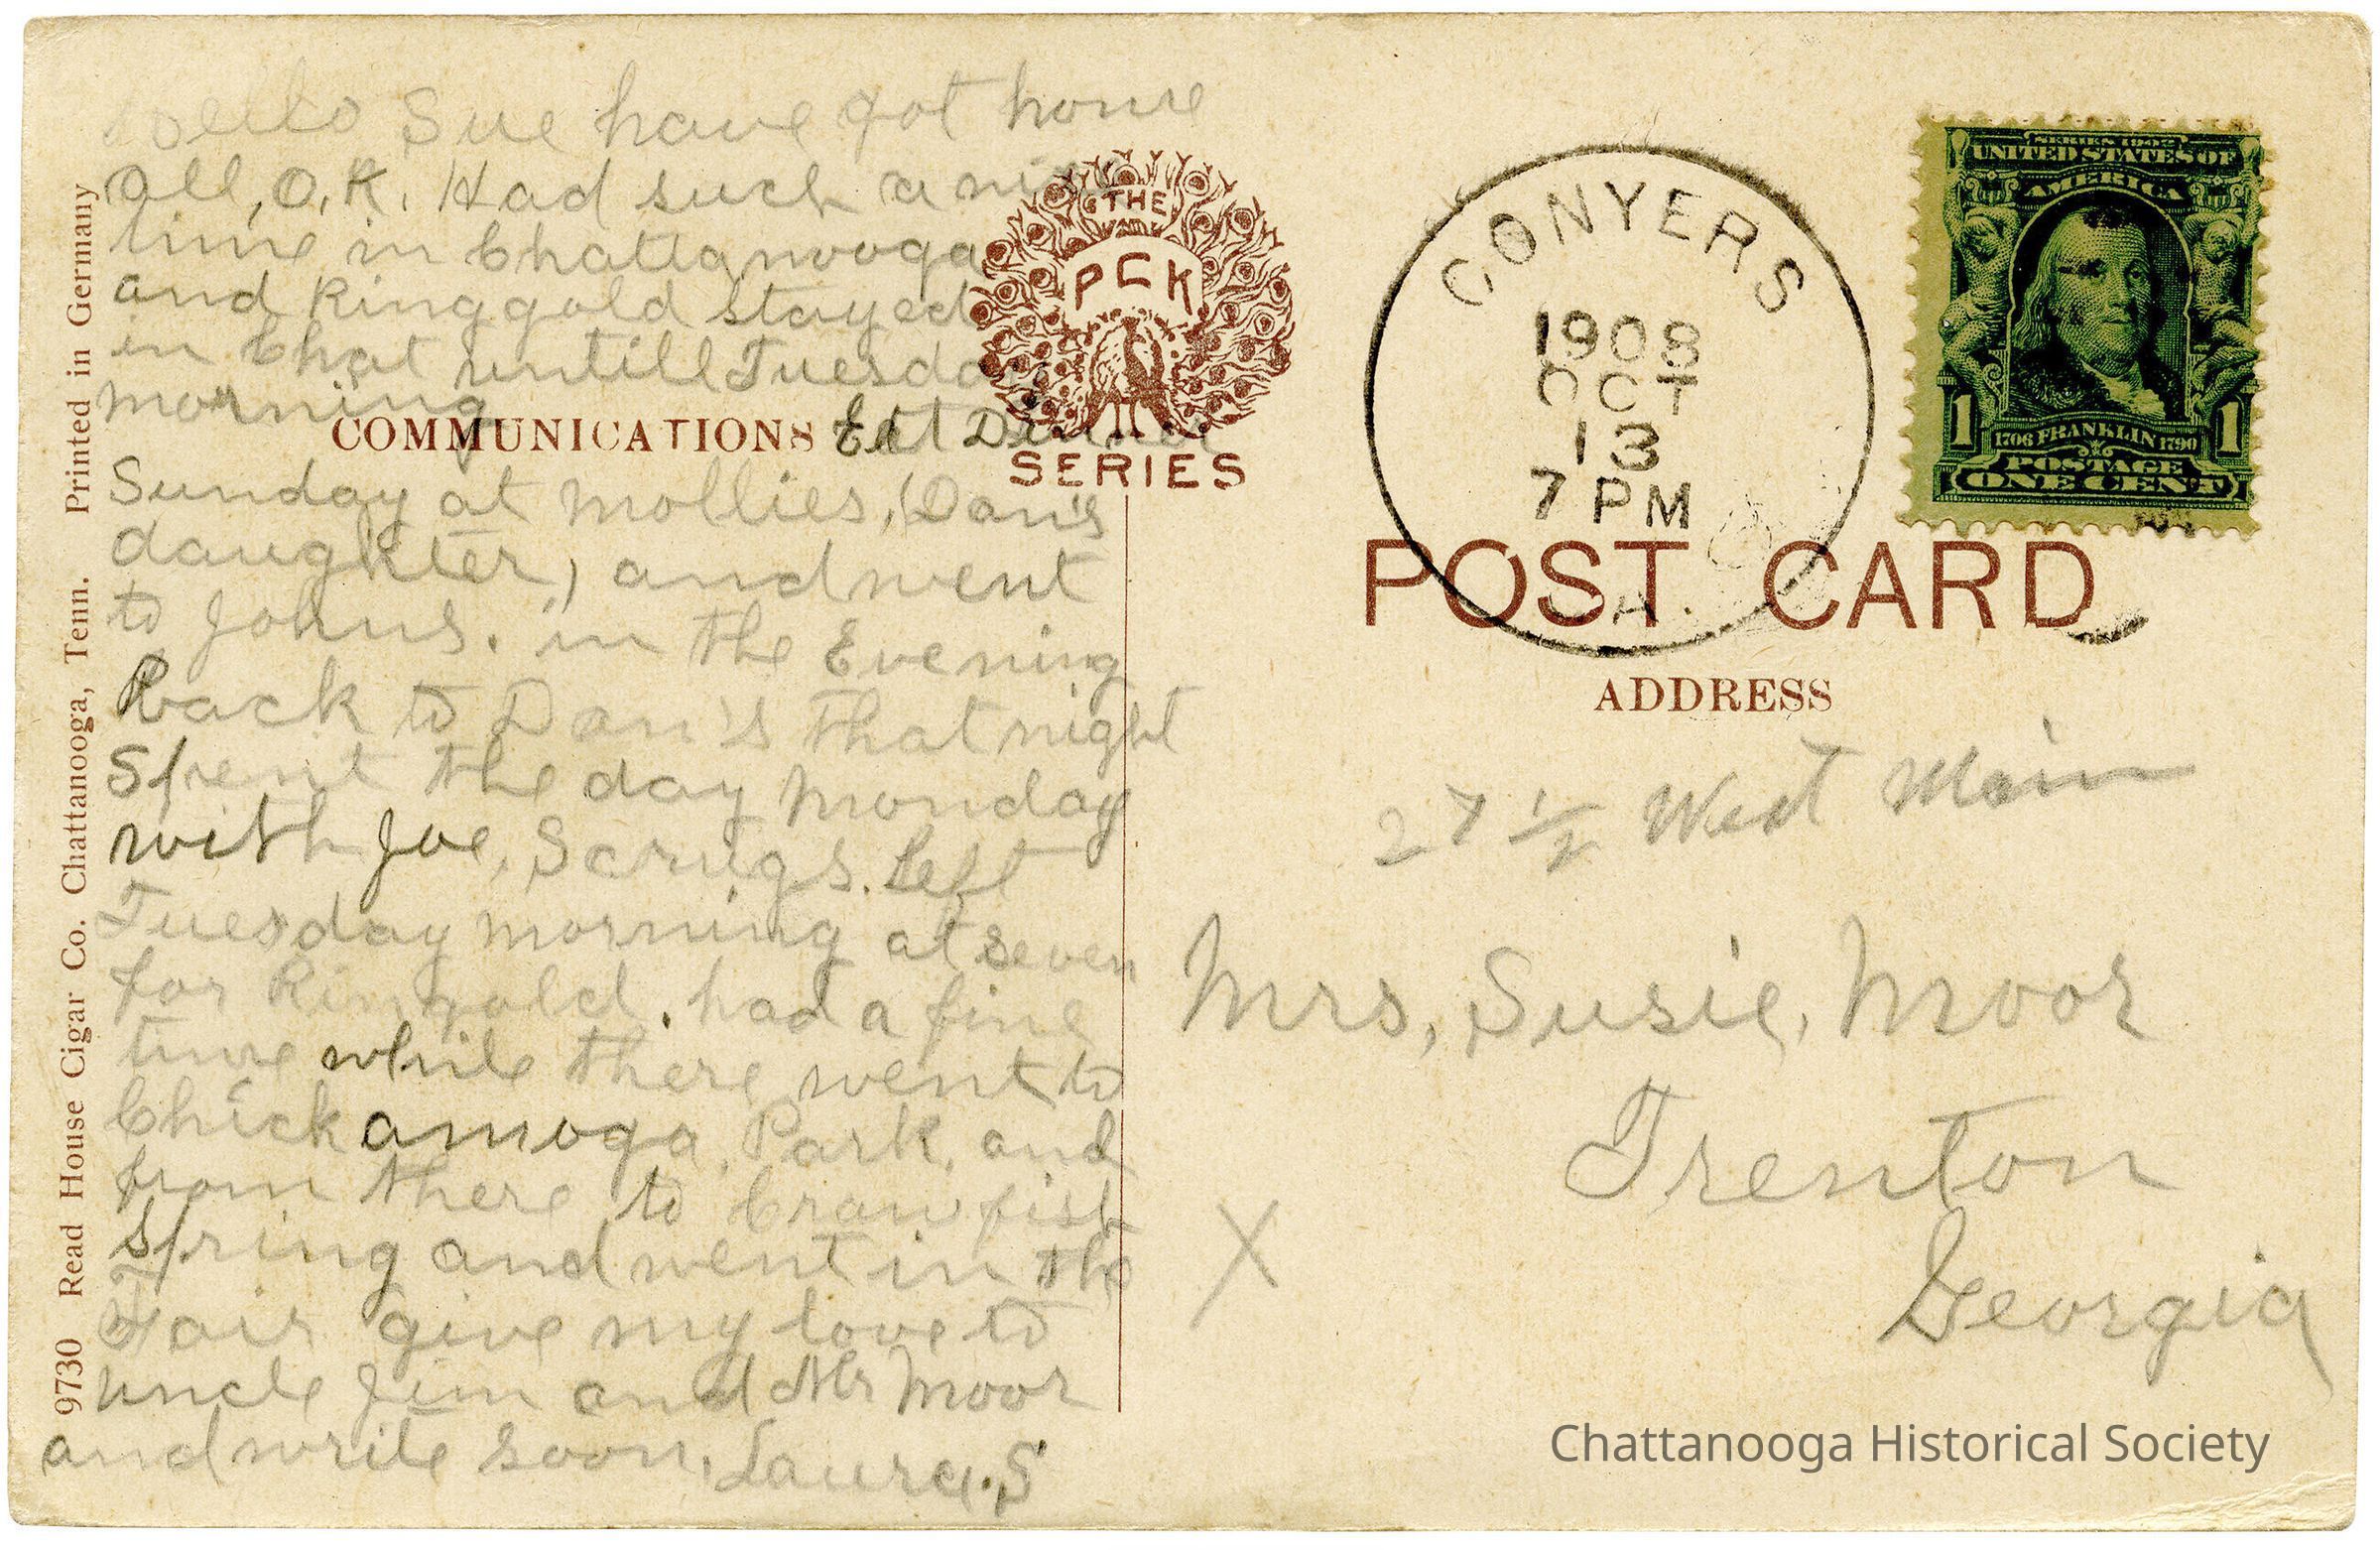 Hello Sue have got home
all, O.K. Had such a nice
time in Chattanooga
and Ringgold stayed
in Chat untill Tuesday
morning
Eat Dinner
Sunday at Mollies, (Dan's
daughter,) and went
to Johns. in the Evening
Back to Dan's that night
Spent the day Monday
with Joe, Scrugs. Left
Tuesday morning at seven
for Ringold. had a fine
time while there went to
Chickamoga, Park, and
from there to Crawfish
Spring and went in the
Fair give my love to
uncle Jim and Mr Moor
and write soon, Laura. S
COMMUNICATIONS
THE
PCK
SERIES
9730 Read House Cigar Co. Chattanooga, Tenn. Printed in Germany
CONYERS
1908
OCT
13
7 PM
GA.
SERIES 1902
UNITED STATES OF
AMERICA
1 1
1706 FRANKLIN 1790
POSTAGE
ONE CENT
POST CARD
ADDRESS
27 1/2 West Main
Mrs, Susie, Moor
Trenton
Georgia
X
Chattanooga Historical Society